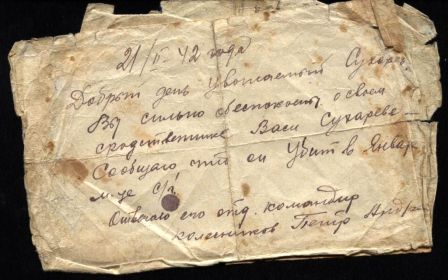 21/II-42 года
Добрый день уважаемый Сухарев
Вы сильно обеспокоены о своем
сродственнике Васи Сухареве —
Сообщаю что он Убит в Январ
м-це с/г
Отвечает его отд. командир
колесников Петр Андр